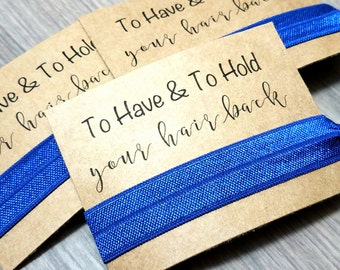 To Have & To Hold
your hair back
To Have & To Hold
your hair back
To Have & To Hold
your hair back